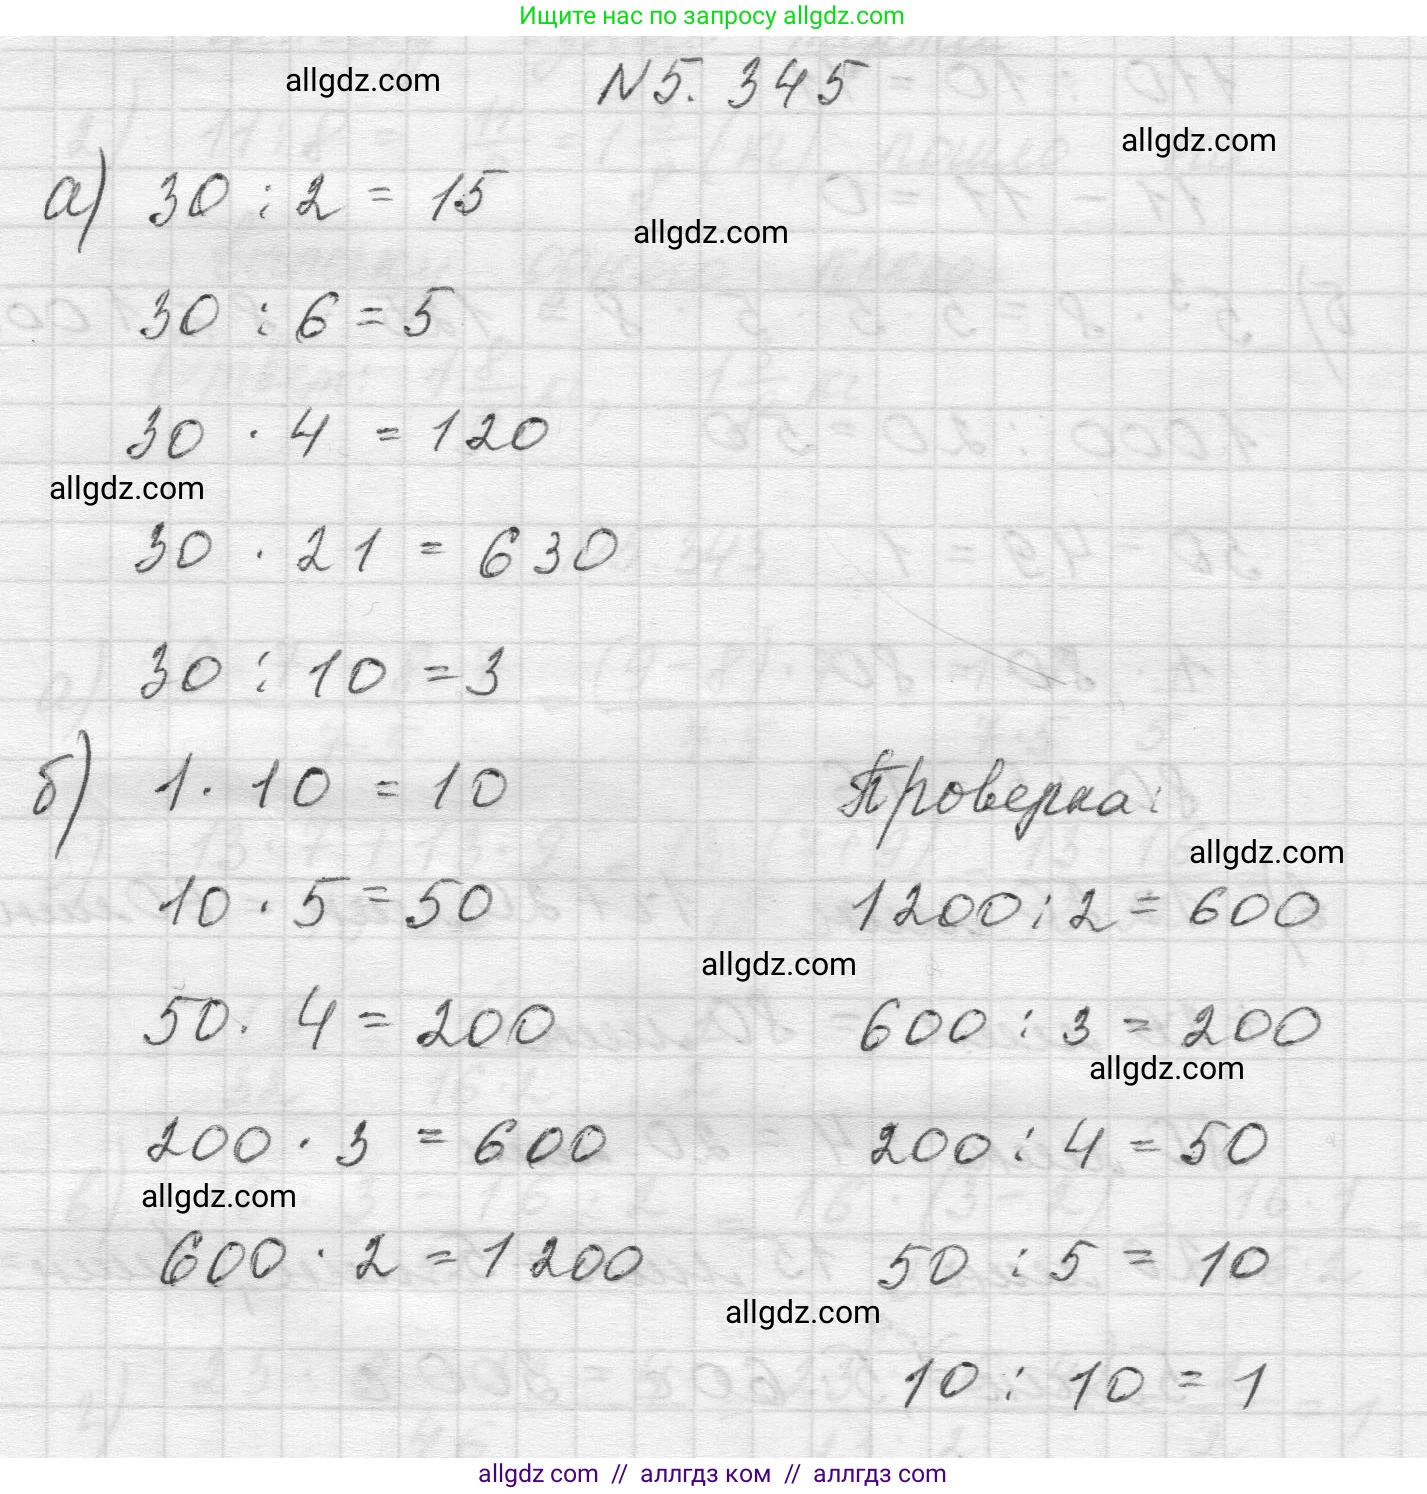 Ищите нас по запросу allgdz.com
allgdz.com
N 5. 345
allgdz.com
а) 30 : 2 = 15
allgdz.com
30 : 6 = 5
30 · 4 = 120
allgdz.com
30 · 21 = 630
30 : 10 = 3
б) 1 · 10 = 10
10 · 5 = 50
50 · 4 = 200
200 · 3 = 600
allgdz.com
600 · 2 = 1200
Проверка:
allgdz.com
1200 : 2 = 600
allgdz.com
600 : 3 = 200
allgdz.com
200 : 4 = 50
50 : 5 = 10
allgdz.com
10 : 10 = 1
allgdz com // аллгдз ком // аллгдз com